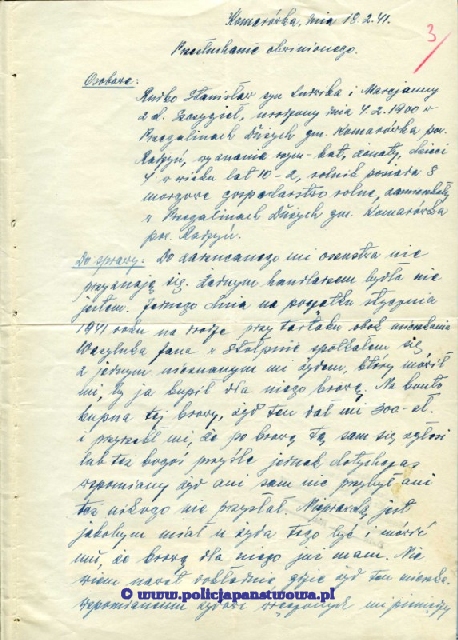 Komarówka, dnia 18.2.41.
3
Przesłuchanie obwinionego.
Osobowe:
Stanisław syn Ludwika i Marcjanny
z d. urodzony dnia 7.2.1900 w
Przegalinach Dużych gm. Komarówka pow.
Radzyń, wyznania rzym-kat, żonaty, dzieci
4 w wieku lat 10-2, rolnik posiada 8
morgowe gospodarstwo rolne, zamieszkały
w Przegalinach Dużych gm. Komarówka
pow. Radzyń.
Do sprawy: Do zarzucanego mi nie
przyznaję się. Żadnym handlarzem bydła nie
jestem. Jednego dnia na początku stycznia
1941 roku na drodze przy tartaku obok mieszkania
Jana w spotkałem się
z jednym nieznanym mi żydem, który mówił
mi, by ja kupił dla niego krowę. Na konto
kupna tej krowy, żyd ten dał mi 300 zł.
i przyrzekł mi, że po krowę tą sam się zgłosi
lub też kogoś przyśle jednak dotychczas
wspomniany żyd ani sam nie przybył ani
też nikogo nie przysłał. Nieprawdą jest
jakobym miał u żyda tego być i mówić
mu, że krowę dla niego już mam. Nie
wiem nawet dokładnie gdzie żyd ten mieszka.
wspomnianemu żydowi mi pieniędzy
www.policjapanstwowa.pl